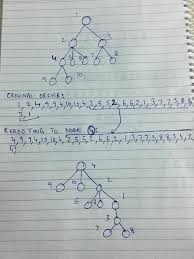 1
2
3
4
8
9
10
ORIGINAL ORDER:
1, 2, 4, 9, 9, 4, 10, 10, 4, 2, 5, 5, 2, 6, 6, 2, 1, 3, 7, 7, 3, 8, 8,
3, 1
REROOTING TO NODE
4, 9, 9, 4, 10, 10, 4, 2, 5, 5, 2, 6, 6, 2, 1, 3, 7, 7, 3, 8, 8, 3, 1, 2
4
9
10
2
5
6
1
3
7
8